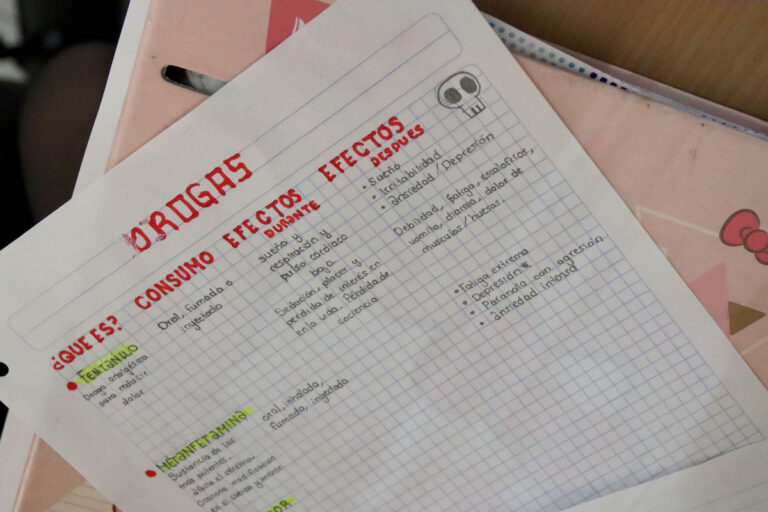 DROGAS
¿QUE ES?
CONSUMO
EFECTOS
DURANTE
EFECTOS
DESPUES
FENTANILO
Droga analgésica
para reducir
dolor
Oral, fumada o
inyectado
sueño y
respiración y
pulso cardíaco
baja.
Sedación, placer y
perdida de interés en
en la vida. Pérdida de
cociencia
• Sueño
• Irritabilidad
• Ansiedad / Depresión
Debilidad, fatiga, escalofríos,
vomito, diarrea, dolor de
musculos / huesos.
METANFETAMINA
Sustancia de las
más potentes.
afecta el cerebro.
modificación
en el cuerpo y mente.
oral, inhalada,
fumada, inyectada
• Fatiga extrema
• Depresión
• Paranoia con agresión
• Ansiedad intensa